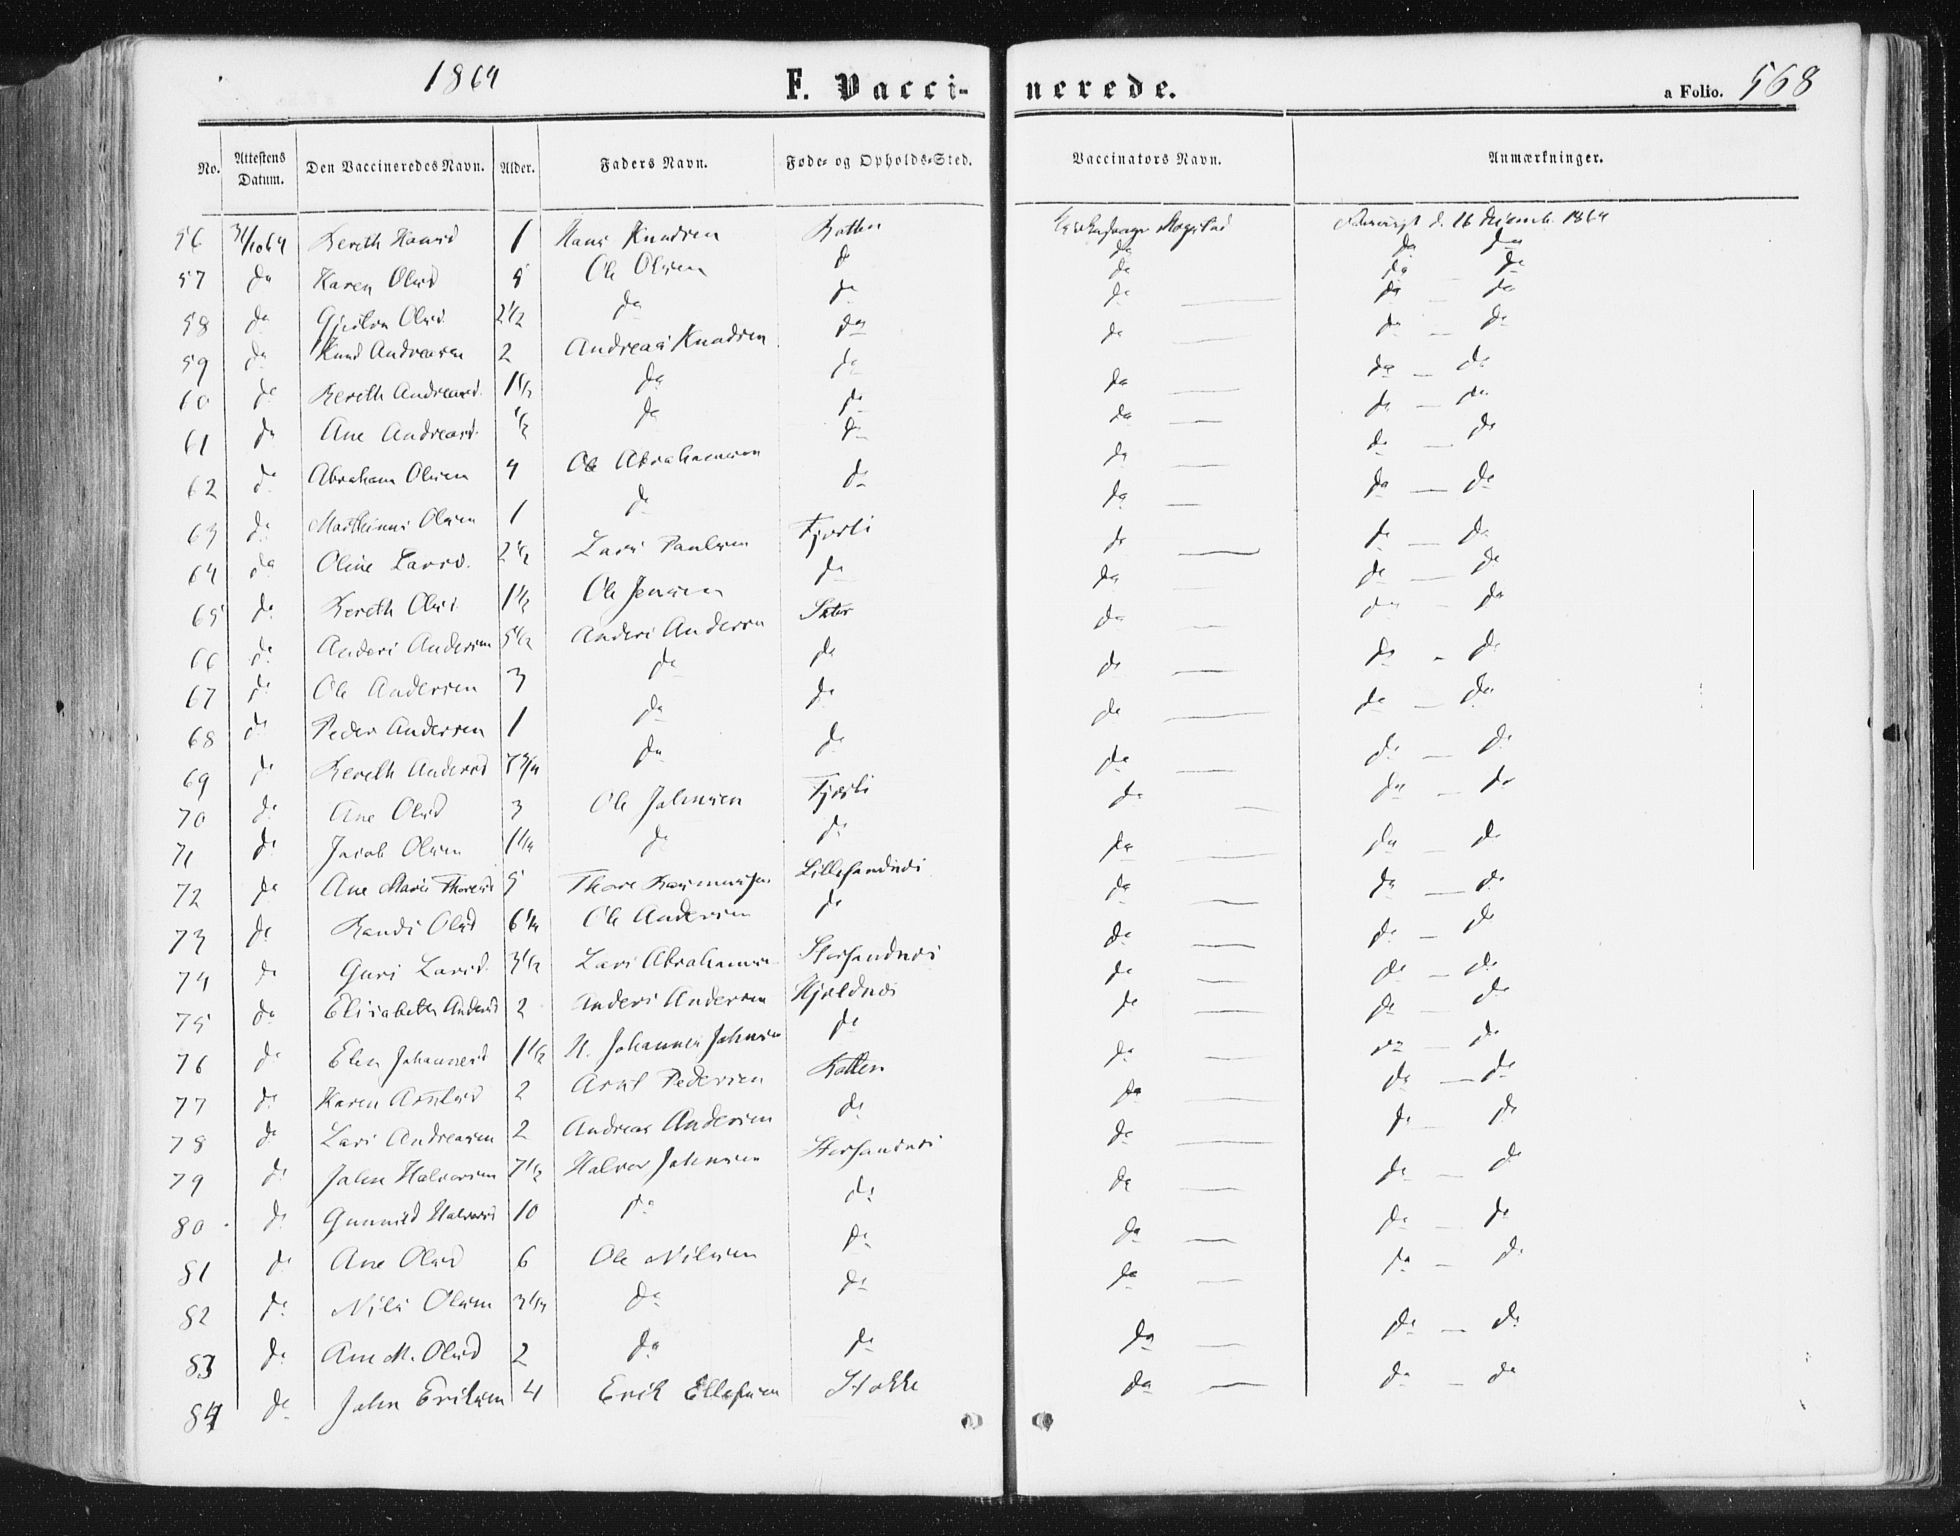 1864 F. Vaccinerede. a Folio. 568
No. Attestens Datum. Den Vaccineredes Navn. Alder. Faders Navn. Føde- og Opholds-Sted. Vaccinators Navn. Anmærkninger.
56 31/10 64 Bereth Hansd 1 Hans Knudsen d. 16 Decemb. 1864
57 do Karen Olsd 5 Ole Olsen do do do do
58 do Olsd 2 1/2 do do do do do
59 do Knud Andreasen 2 Andreas Knudsen do do do do
60 do Bereth Andreasd. 1 1/2 do do do do do
61 do Ane Andreasd. 1/2 do do do do do
62 do Abraham Olsen 4 Ole Abrahamsen do do do do
63 do Mathinus Olsen 1 do do do do do
64 do Oline Larsd. 2 1/2 Lars Paulsen Fjærli do do do
65 do Bereth Olsd 1 1/2 Ole Jensen do do do do
66 do Anders Andersen 5 1/2 Anders Andersen Sæter do do do
67 do Ole Andersen 3 do do do do do
68 do Peder Andersen 1 do do do do do
69 do Bereth Andersd do do do do do
70 do Ane Olsd 3 Ole Johnsen Fjærli do do do
71 do Jacob Olsen 1 1/4 do do do do do
72 do Ane Marie Thoresd 5 Thore Rasmussen Lillesandnæs do do do
73 do Randi Olsd 6 1/4 Ole Andersen do do do do
74 do Guri Larsd. 3 1/2 Lars Abrahamsen Storsandnæs do do do
75 do Elisabeth Andersd 2 Anders Andersen Skjeldnæs do do do
76 do Elen Johannesd 1 1/2 H. Johannes Johnsen do do do do
77 do Karen Arntsd 2 Arnt Pedersen do do do
78 do Lars Andreasen 2 Andreas Andersen do do do do
79 do John Halvorsen 7 1/2 Halvor Johnsen Storsandnæs do do do
80 do Gunnild Halvorsd 10 do do do do do
81 do Ane Olsd 6 Ole Nilsen do do do do
82 do Nils Olsen 3 1/4 do do do do do
83 do Ane M. Olsd 2 do do do do do
84 do John Eriksen 4 Erik Ellefsen Stokke do do do